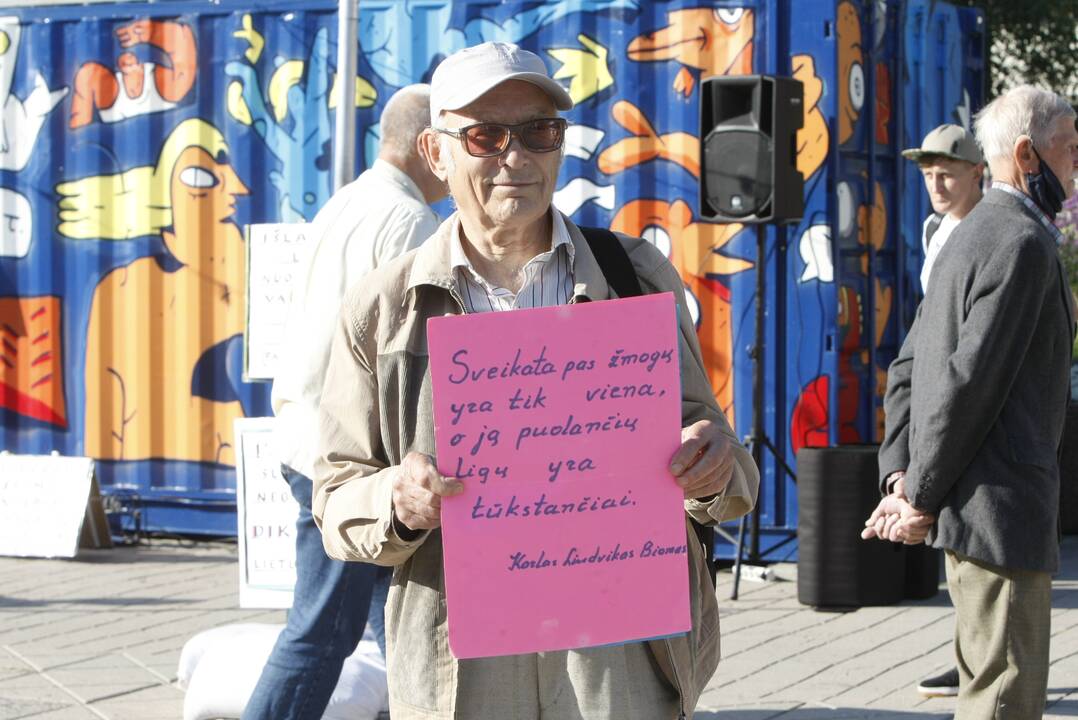 Sveikata pas žmogų
yra tik viena,
o ją puolančių
Ligų yra
tūkstančiai.
Karlas Liudvikas Biornas
IŠLA
NUO
DIK
LIETU